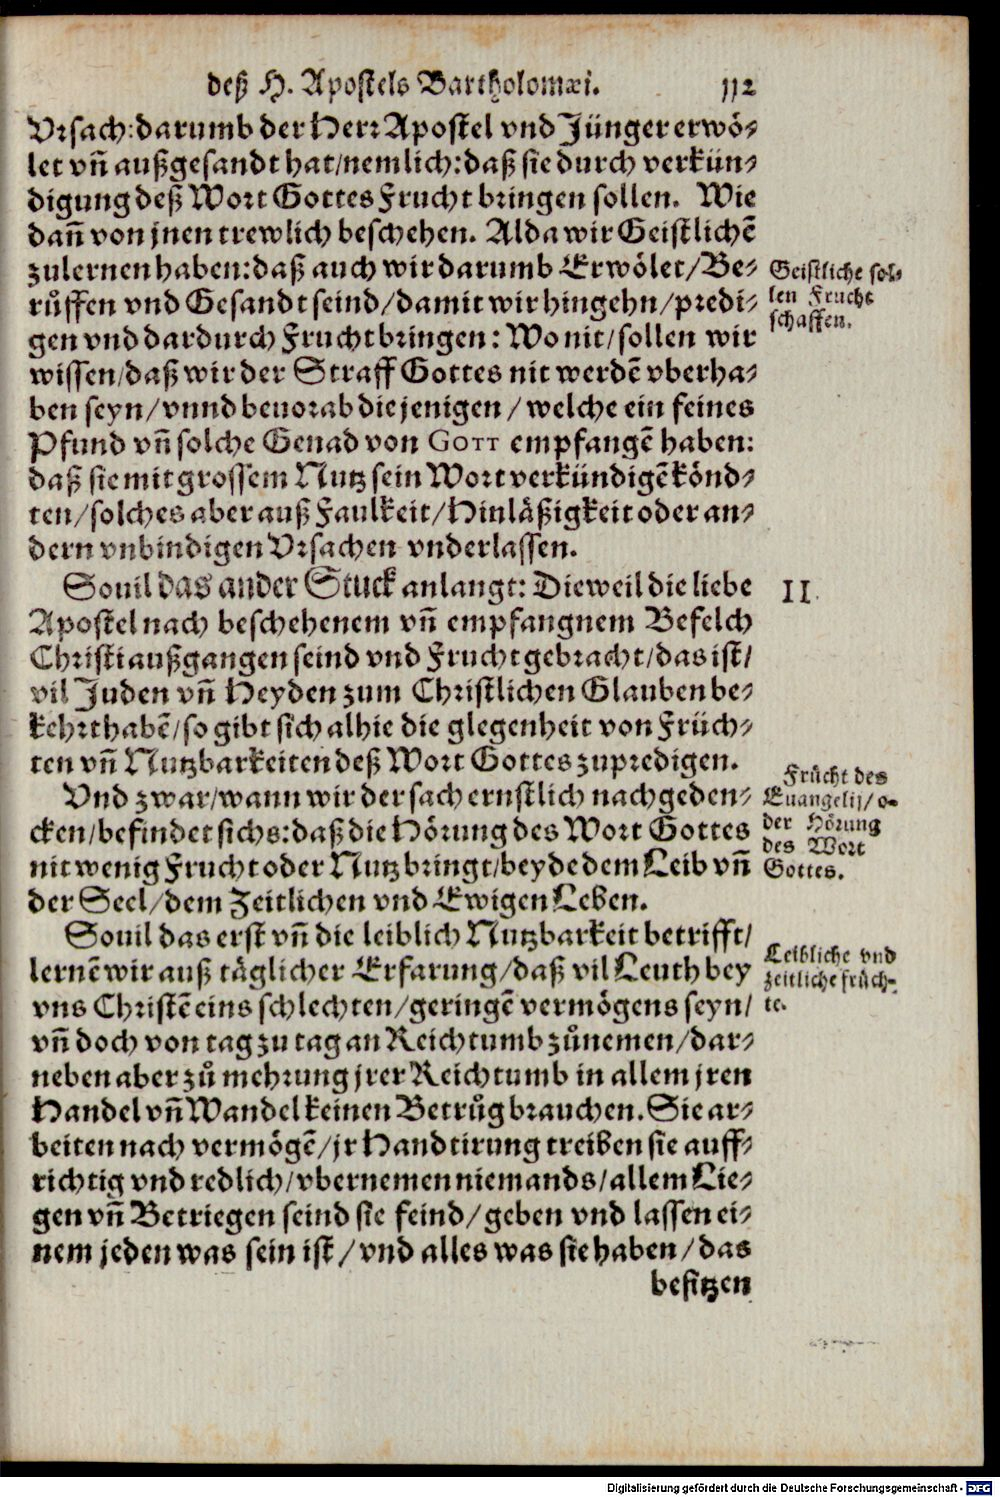 deß H. Apostels Bartholomæi. 112
Vrsach: darumb der Herr Apostel vnd Jünger erwö-
let vn̄ außgesandt hat/ nemlich: daß sie durch verkün-
digung deß Wort Gottes Frucht bringen sollen. Wie
dan̄ von jnen trewlich beschehen. Alda wir Geistlichē
zulernen haben: daß auch wir darumb Erwölet/ Be-
růffen vnd Gesandt seind/ damit wir hingehn/ predi-
gen vnd dardurch Frucht bringen: Wo nit/ sollen wir
wissen/ daß wir der Straff Gottes nit werdē vberha-
ben seyn/ vnnd beuorab die jenigen/ welche ein feines
Pfund vn̄ solche Genad von GOTT empfangē haben:
daß sie mit grossem Nutz sein Wort verkündigē könd-
ten/ solches aber auß Faulkeit/ Hinläßigkeit oder an-
dern vnbindigen Vrsachen vnderlassen.
Geistliche sol-
len Frucht
schaffen.
Souil das ander Stuck anlangt: Dieweil die liebe
Apostel nach beschehenem vn̄ empfangnem Befelch
Christi außgangen seind vnd Frucht gebracht/ das ist/
vil Juden vn̄ Heyden zum Christlichen Glauben be-
kehrt habē/ so gibt sich alhie die glegenheit von Früch-
ten vn̄ Nutzbarkeiten deß Wort Gottes zupredigen.
II.
Vnd zwar/ wann wir der sach ernstlich nachgeden-
cken/ befindet sichs: daß die Hörung des Wort Gottes
nit wenig Frucht oder Nutz bringt/ beyde dem Leib vn̄
der Seel/ dem Zeitlichen vnd Ewigen Leben.
Frücht des
Euangelij/ o-
der Hörung
des Wort
Gottes.
Souil das erst vn̄ die leiblich Nutzbarkeit betrifft/
lernē wir auß täglicher Erfarung/ daß vil Leuth bey
vns Christē eins schlechten/ geringē vermögens seyn/
vn̄ doch von tag zu tag an Reichtumb zůnemen/ dar-
neben aber zů mehrung jrer Reichtumb in allem jren
Handel vn̄ Wandel keinen Betrůg brauchen. Sie ar-
beiten nach vermögē/ jr Handtirung treiben sie auff-
richtig vnd redlich/ vbernemen niemands/ allem Lie-
gen vn̄ Betriegen seind sie feind/ geben vnd lassen ei-
nem jeden was sein ist/ vnd alles was sie haben/ das
besitzen
Leibliche vnd
zeitliche früch-
te.
Digitalisierung gefördert durch die Deutsche Forschungsgemeinschaft - DFG